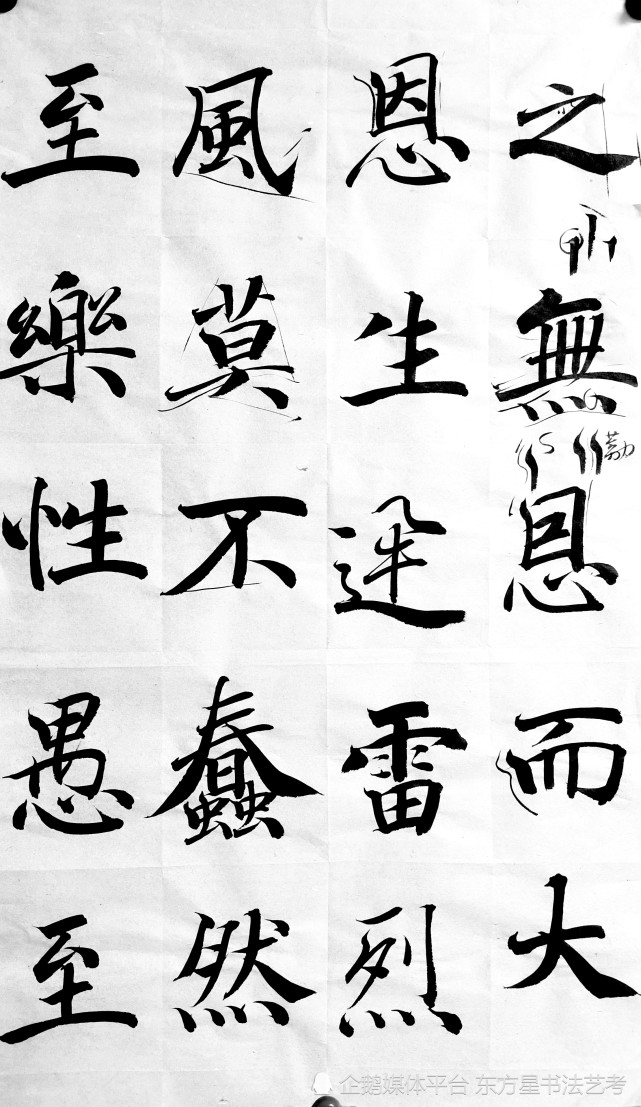 之無恩而大
恩生迅雷烈
風莫不蠢然
至樂性愚至
勒
企鹅媒体平台 东方星书法艺考